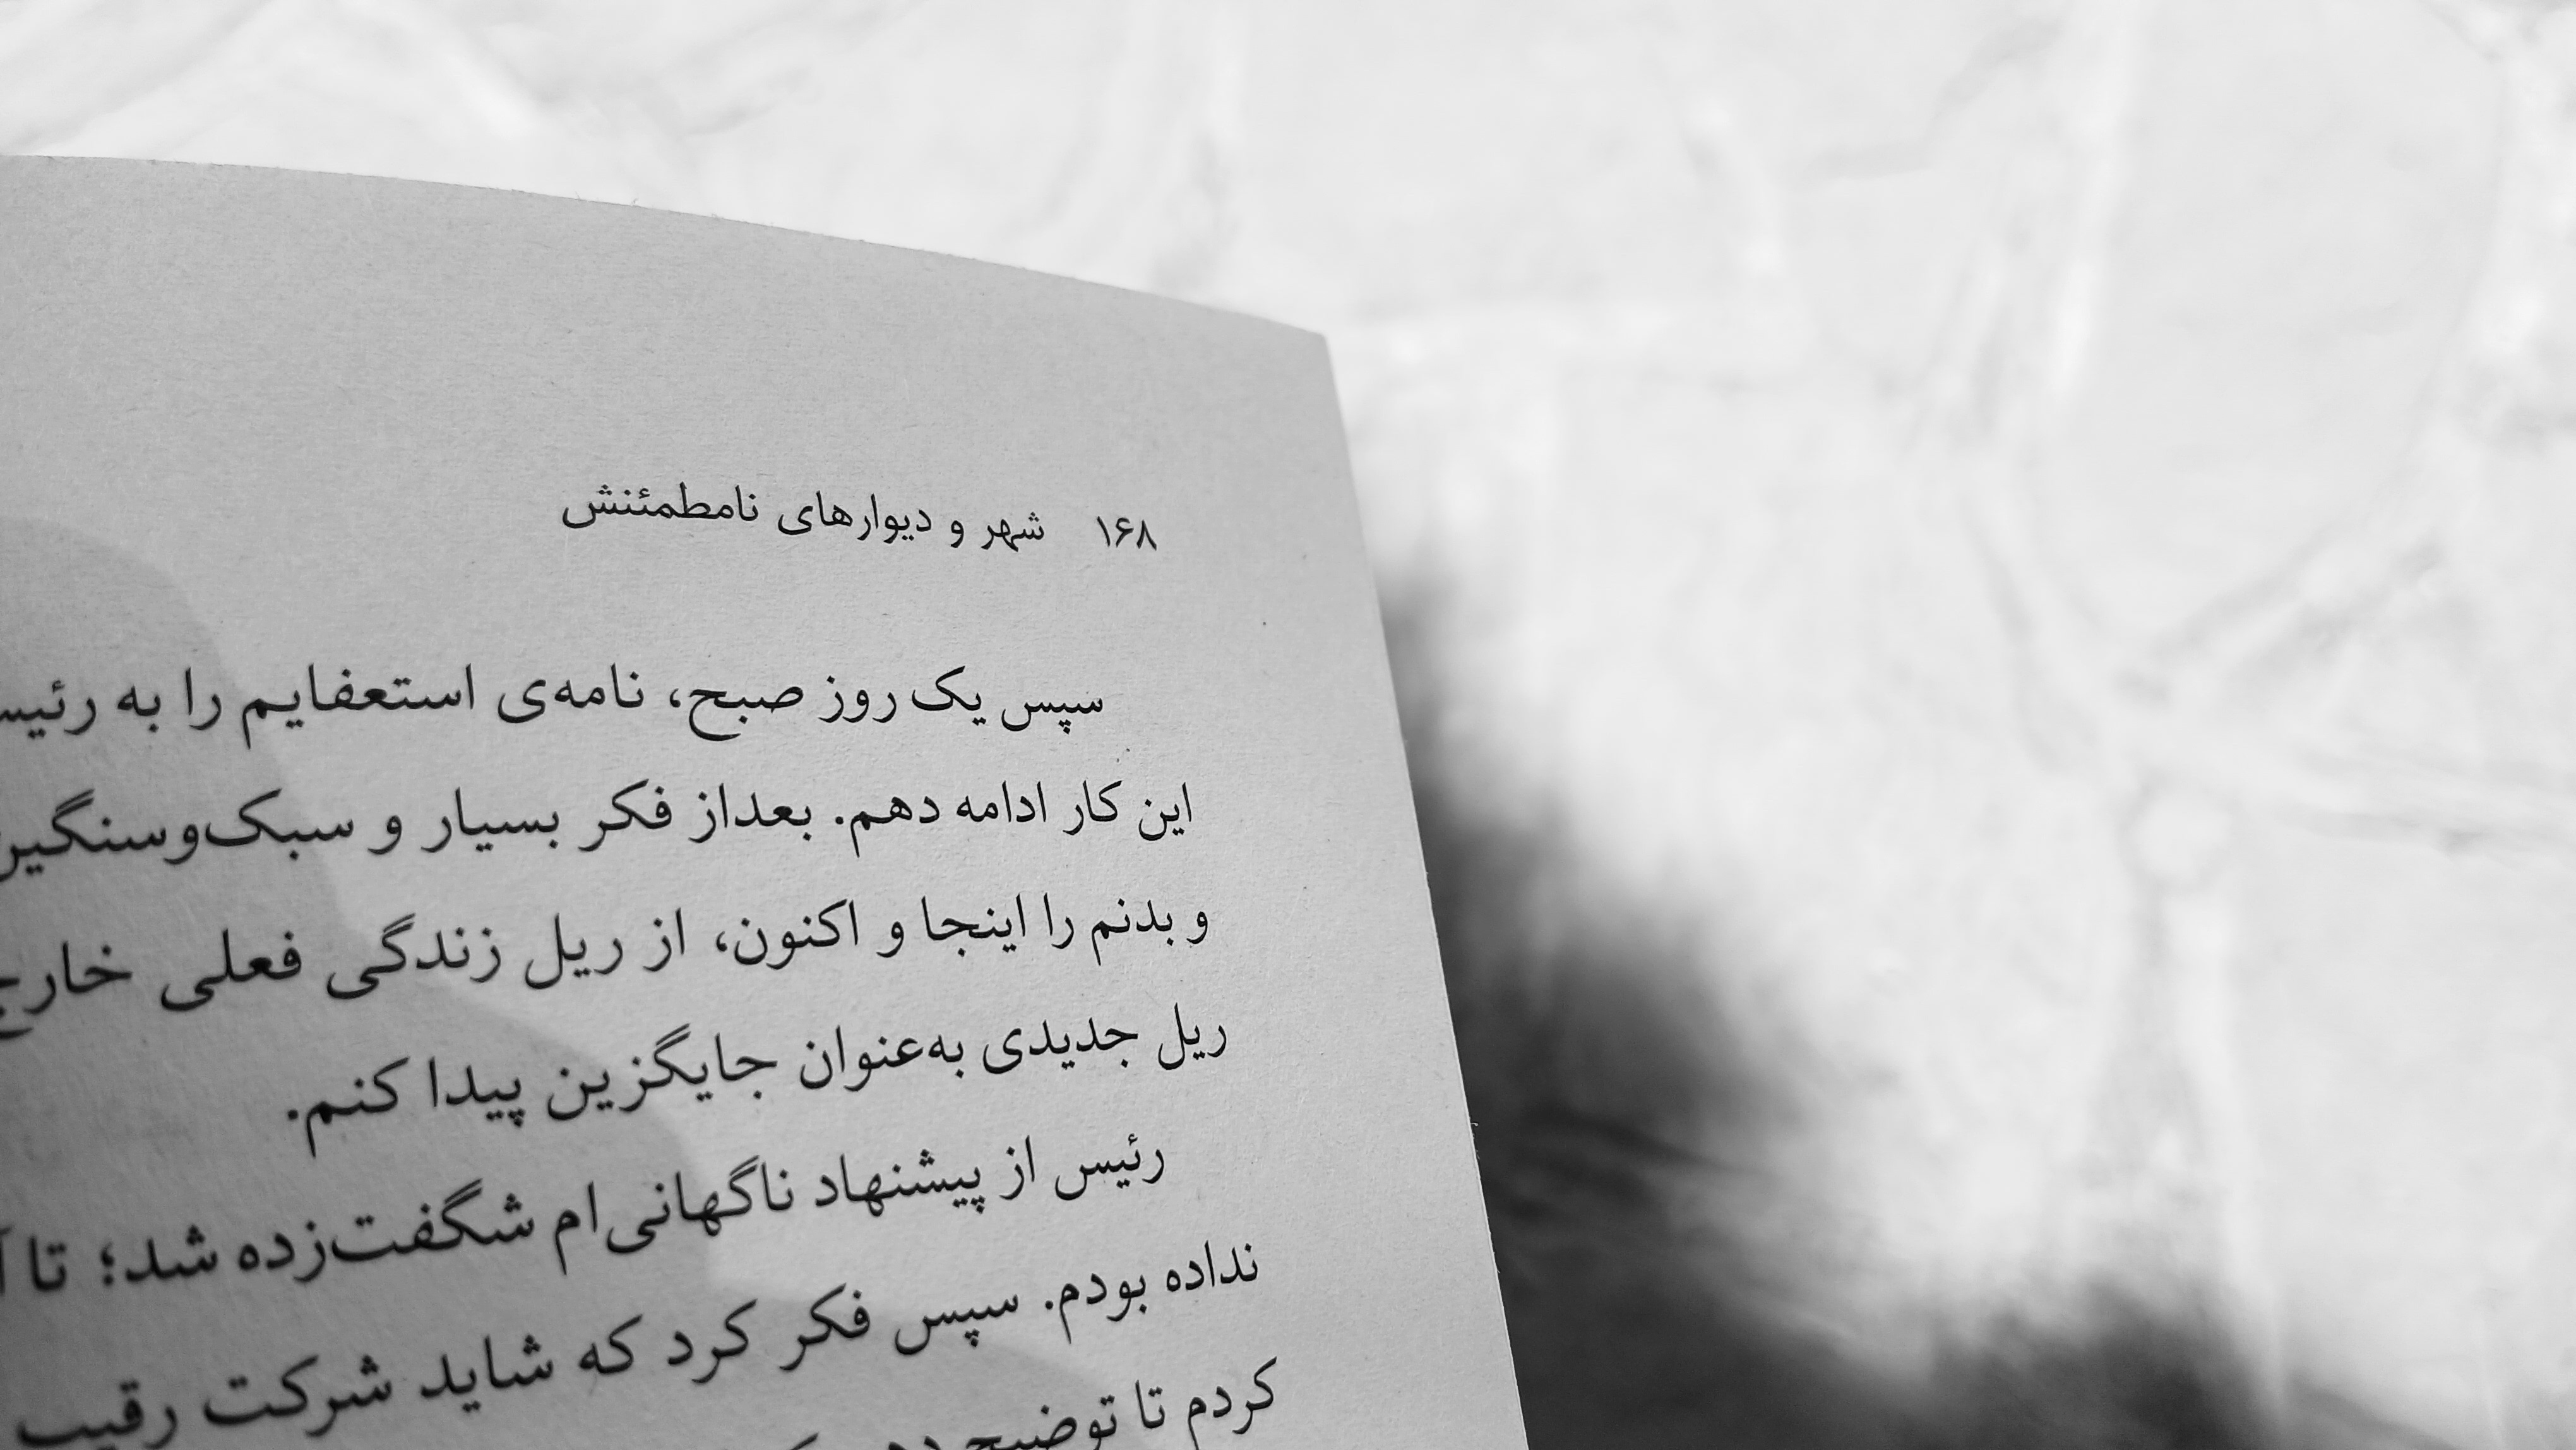 ۱۶۸ شهر و دیوارهای نامطمئنش
سپس یک روز صبح، نامه‌ی استعفایم را به
این کار ادامه دهم. بعداز فکر بسیار و
و بدنم را اینجا و اکنون، از ریل زندگی فعلی
ریل جدیدی به‌عنوان جایگزین پیدا کنم.
رئیس از پیشنهاد ناگهانی‌ام شگفت‌زده شد؛ تا
نداده بودم. سپس فکر کرد که شاید شرکت رقیب
کردم تا توضیح